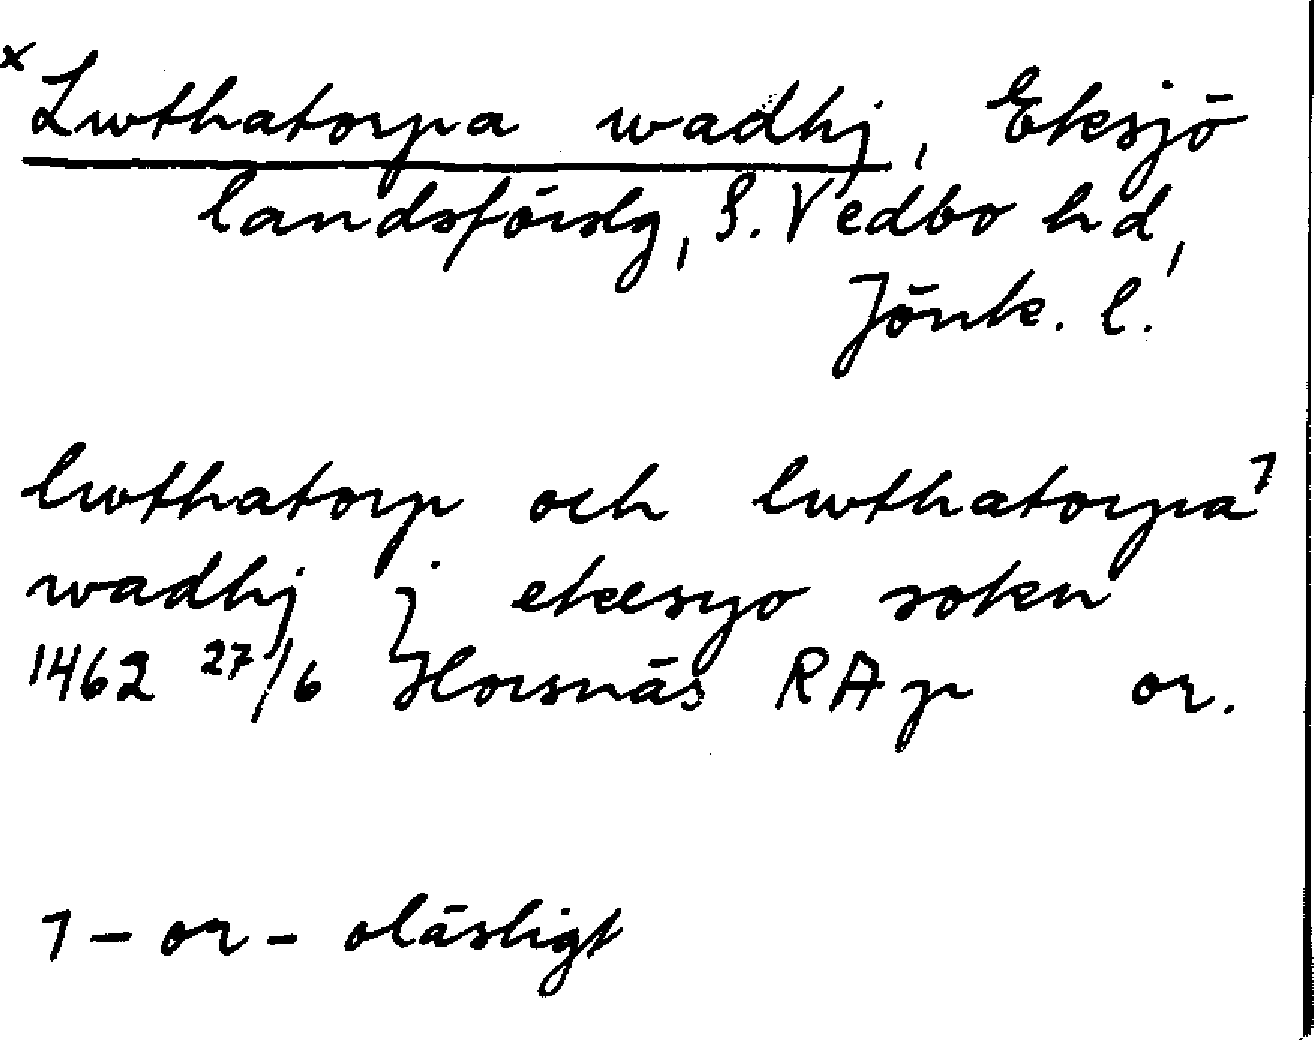 x Lwthatorpa wadhj, Eksjö
landsförslg, S. Vedbo hd,
Jönk. l.
lwthatorp och lwthatorpa⁊
wadhj j ekesyo soken
1462 27/6 Horsnäs RAp or.
⁊ - or - oläsligt